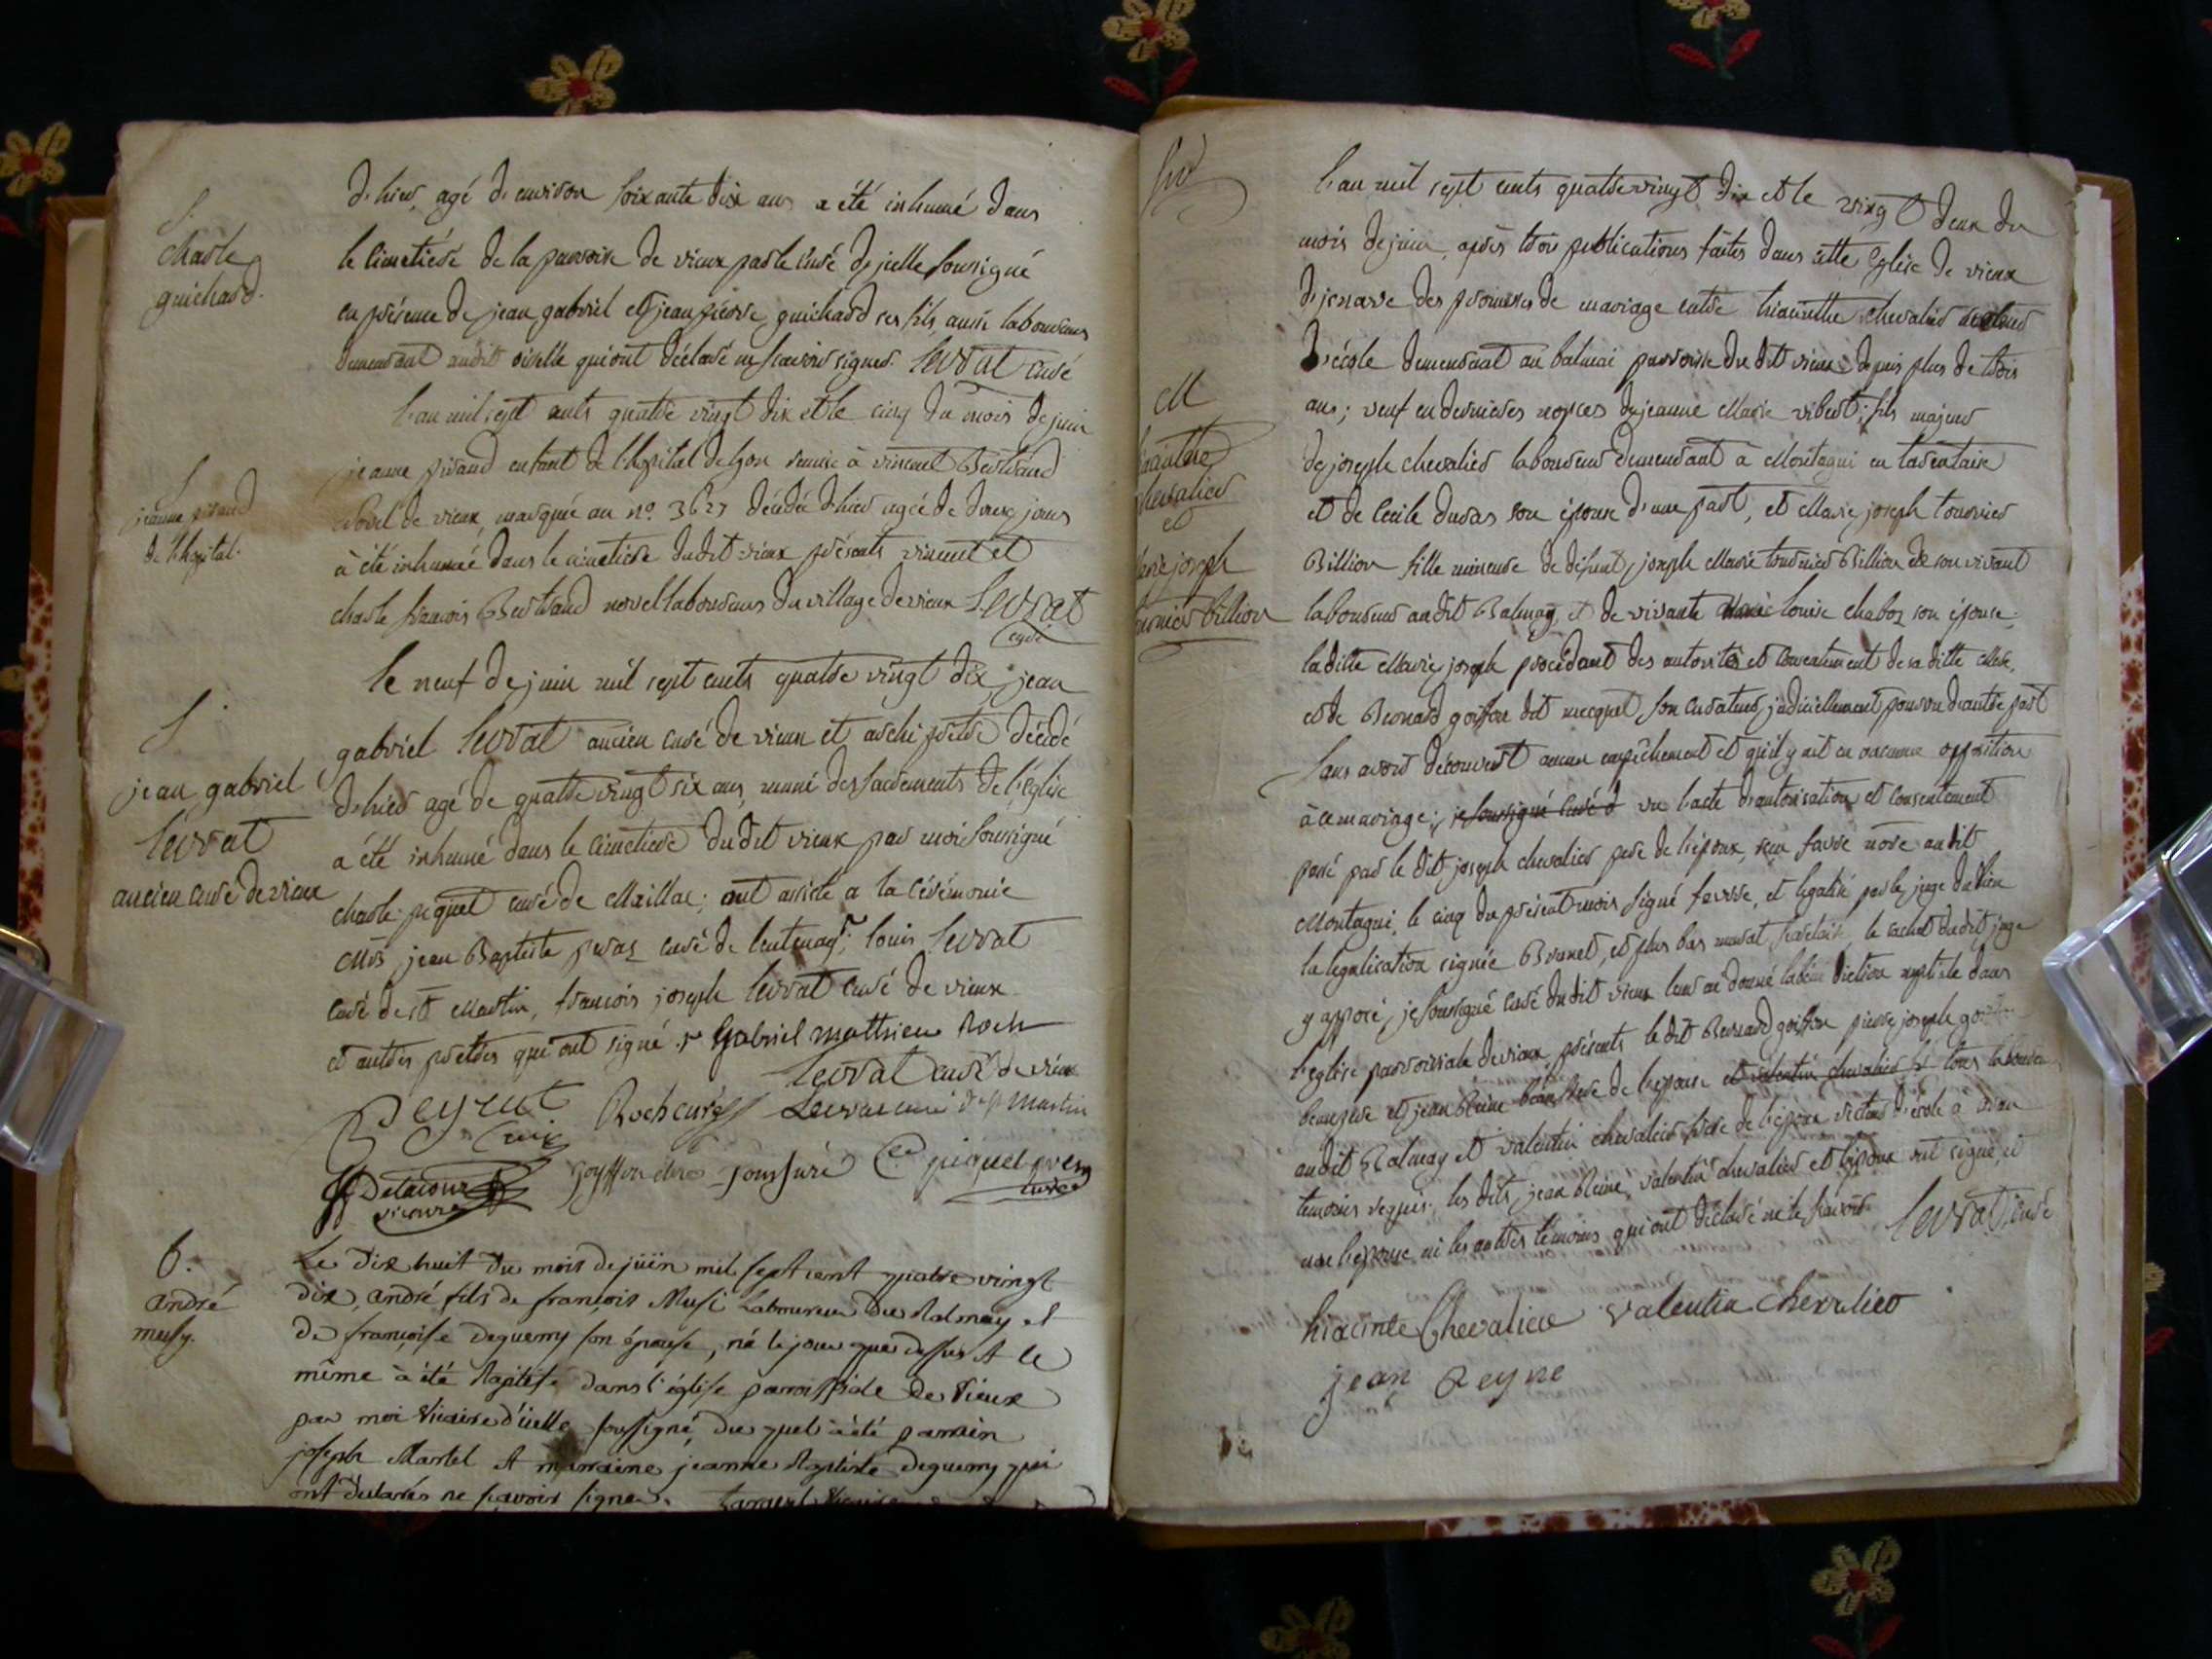 d'hier, agé d'environ soixante dix ans a été inhumé dans
S. Charle guichard.
le cimetière de la parroisse de vieux par le curé d'jcelle soussigné
en présence de jean gabriel et jean pierre guichard ses fils aussi laboureurs
demeurant audit qui ont déclaré ne scavoir signer. Levrat curé
l'an mil sept cents quatre vingt dix et le cinq du mois de juin
S. jeanne pivaud de l'hopital.
jeanne pivaud enfant de l'hopital de lyon remise à vincent Bertrand
novel de vieux, marquée au n°. 3627 décédée d'hier agée de douze jours
à été inhumée dans le cimetière dudit vieux présents vincent et
charle françois Bertrand novel laboureurs du village de vieux Levrat
curé
le neuf de juin mil sept cents quatre vingt dix, jean
S. jean gabriel Levrat ancien curé de vieux
gabriel Levrat ancien curé de vieux et archi prêtre décédé
d'hier agé de quatre vingt six ans, muni des sacrements de l'église
a été inhumé dans le cimetière dudit vieux par moi soussigné
charle piquet curé de Maillac; ont assisté a la cérémonie
jean Baptiste curé de louis Levrat
curé de st Martin, françois joseph Levrat curé de vieux
et autres prêtres qui ont signé. gabriel matthieu Roch
Levrat curé de vieux
Peyret Roch curé Levrat curé de st Martin
curé
Delacour goyffon piquet
vicaire curé
B. andré musy.
Le dix huit du mois de juin mil sept cent quatre vingt
dix, andré fils de françois Musi Laboureur du Balmay et
de françoise deguerry son épouse, né le jour que dessus et le
même à été Baptisé dans l'église parroissiale de Vieux
par moi Vicaire d'icelle soussigné, du quel à été parrain
joseph Martel et marraine jeanne Baptiste deguerry qui
ont declarés ne scavoir signer.
l'an mil sept cents quatre vingt dix et le vingt deux du
mois de juin, après trois publications faites dans cette Eglise de vieux
des promesses de mariage entre chevalier
d'école demeurant au balmai parroisse du dit vieux depuis plus de trois
M
ans; veuf en dernieres nopces de jeanne Marie vibert; fils majeur
chevalier
et
Marie joseph
tournier billion
de joseph chevalier laboureur demeurant à Montagni en tarentaise
et de Cecile duras son épouse d'une part, et Marie joseph tournier
Billion fille mineure de défunt joseph Marie tournier Billion de son vivant
laboureur audit Balmay, et de vivante louise chaboz son épouse.
la ditte Marie joseph procédant des autorité et consentement de sa ditte Mère,
et de Bernard goiffon dit son curateur judiciellement pourvu d'autre part
sans avoir découvert aucun empêchement et qu'il y ait eu aucune opposition
à ce mariage; je soussigné curé d vu l'acte d'autorisation et consentement
passé par le dit joseph chevalier pere de l'époux, favre notre audit
Montagni, le cinq du présent mois signé favre, et legalisé par le juge du lieu
la legalisation signée Brunet, et plus bas le cachet dudit juge
y apposé, je soussigné curé dudit vieux leur ai donné la bénédiction nuptiale dans
l'église parroissiale de vieux, présents le dit Bernard goiffon pierre joseph
beaupere et jean Reine beau frere de l'epouse et valentin chevalier tous laboureurs
audit Balmay et valentin chevalier frere de l'epoux recteur d'école à
temoins requis. les dits jean Reine, valentin chevalier et l'epoux ont signé, et
non l'epouse ni les autres témoins qui ont déclaré ne le scavoir. Levrat curé
hiacinte Chevalier valentin chevalier
jean Reyne